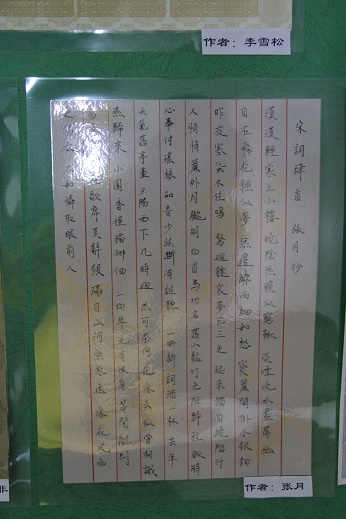 作者：李雪松
宋詞肆首 張月抄
漠漠輕寒上小樓 曉陰無賴似窮秋 淡煙流水畫屏幽
自在飛花輕似夢 無邊絲雨細如愁 寶簾閒掛小銀鉤
昨夜寒蛩不住鳴 驚迴 夢已三更 起來獨自繞階行
人悄悄 簾外月朧明 白首為功名 舊山松竹老阻歸程 欲將
心事付瑤琴 知音少 絃斷有誰聽 一曲新詞酒一杯 去年
天氣舊亭臺 夕陽西下几時迴 無可奈何花落去 似曾相識
燕歸來 小園香徑獨徘徊 一向年光有限身 等閒離別
歌席莫辭頻 滿目山河空念遠 落花風雨
如憐取眼前人
作者：张月
非